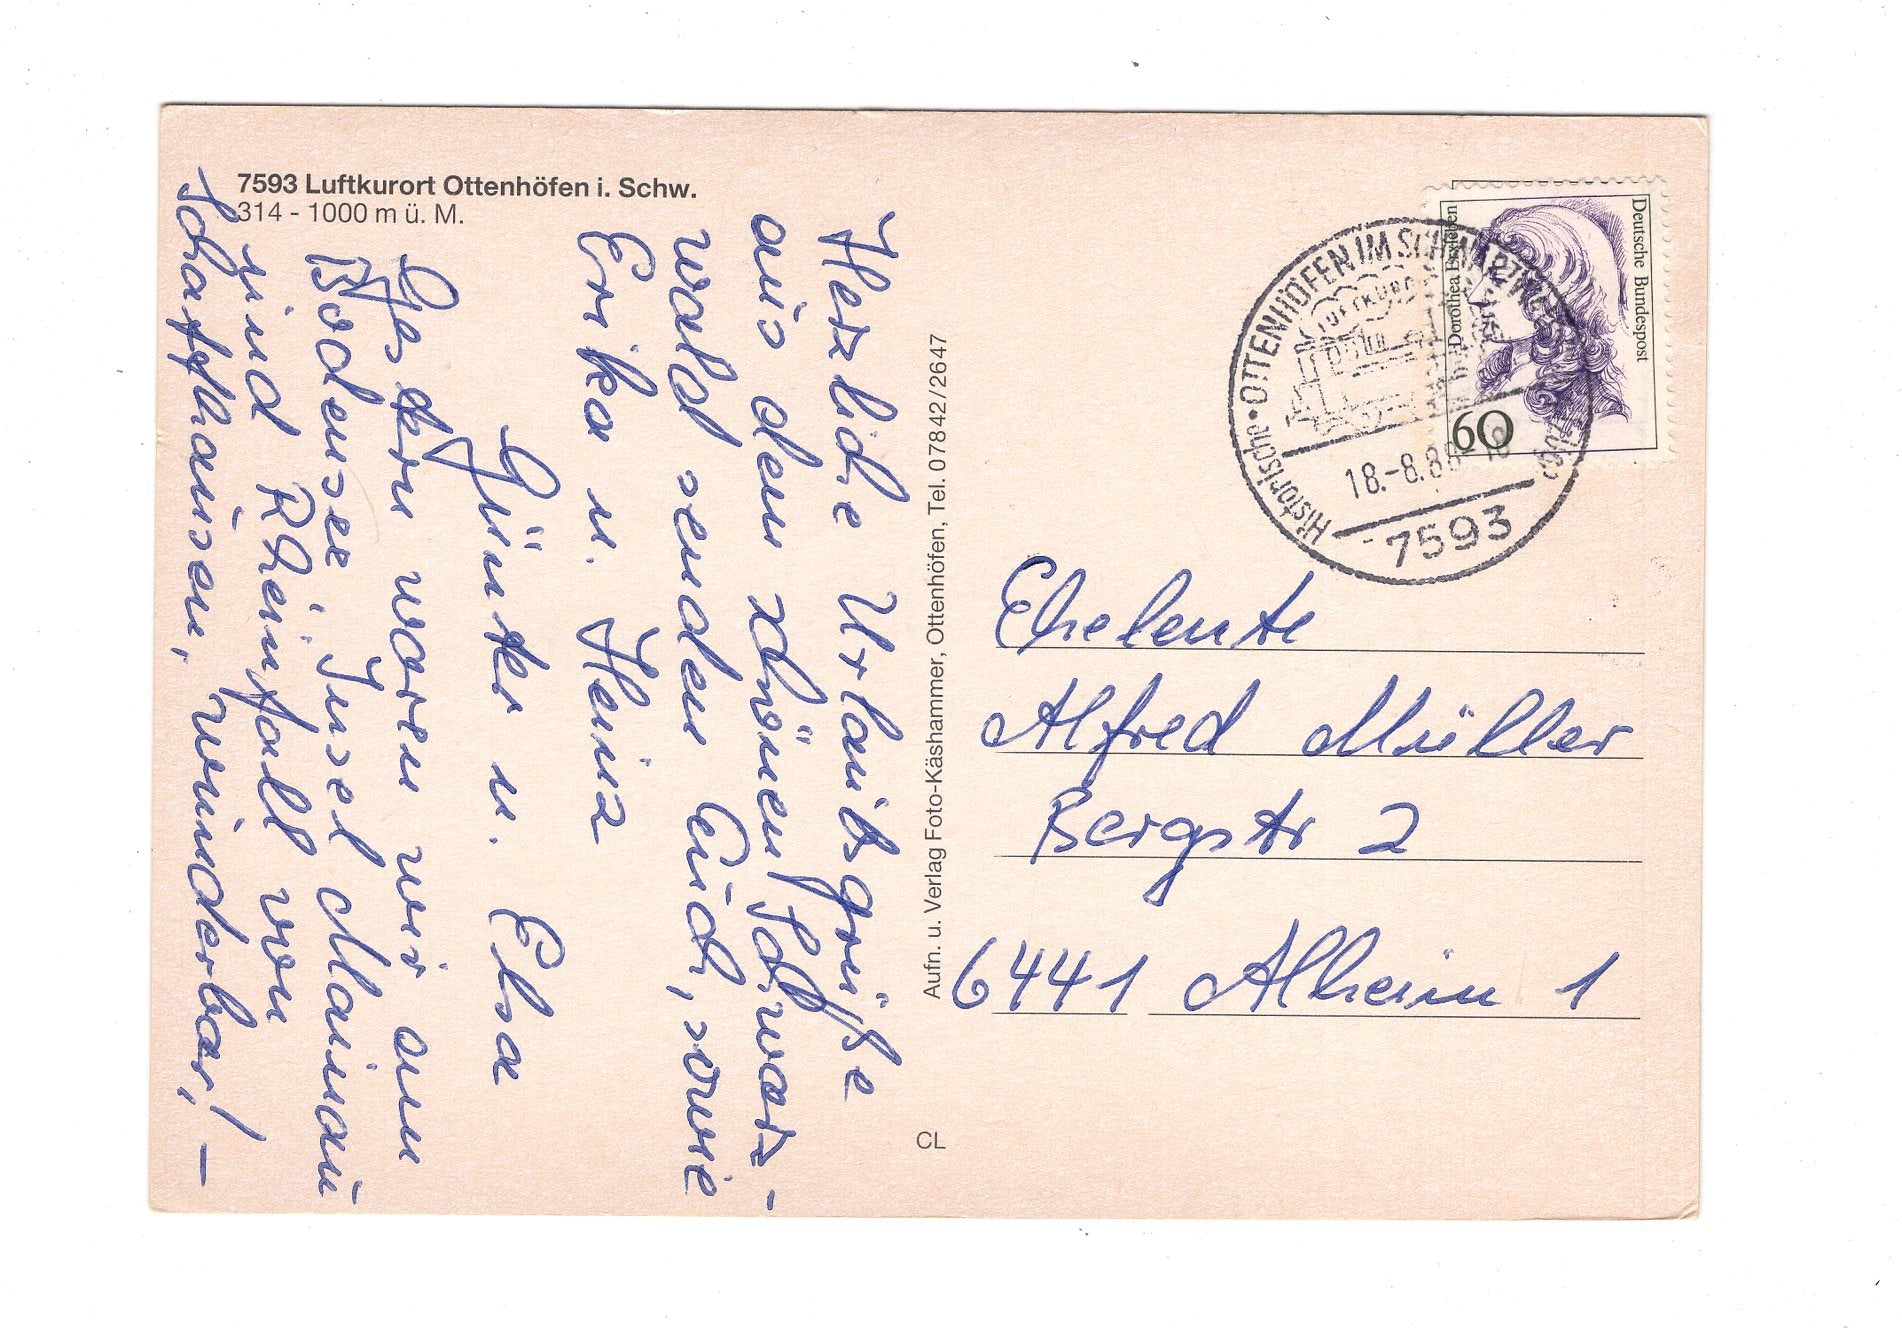 7593 Luftkurort Ottenhöfen i. Schw.
314 - 1000 m ü. M.
Herzliche Urlaubsgrüße
aus dem schönen Schwarz-
wald senden Euch, sowie
Erika u. Heinz
Günter u. Elsa
Gestern waren wir am
Bodensee Insel Mainau
und Rheinfall von
Schaffhausen, wunderbar! -
Aufn. u. Verlag Foto-Käshammer, Ottenhöfen, Tel. 07842/2647
CL
Deutsche Bundespost
Dorothea Erxleben
60
Historische
OTTENHÖFEN IM SCHWARZWALD
LUFTKURORT
18.-8.88
7593
Eheleute
Alfred Müller
Bergstr 2
6441 Alheim 1